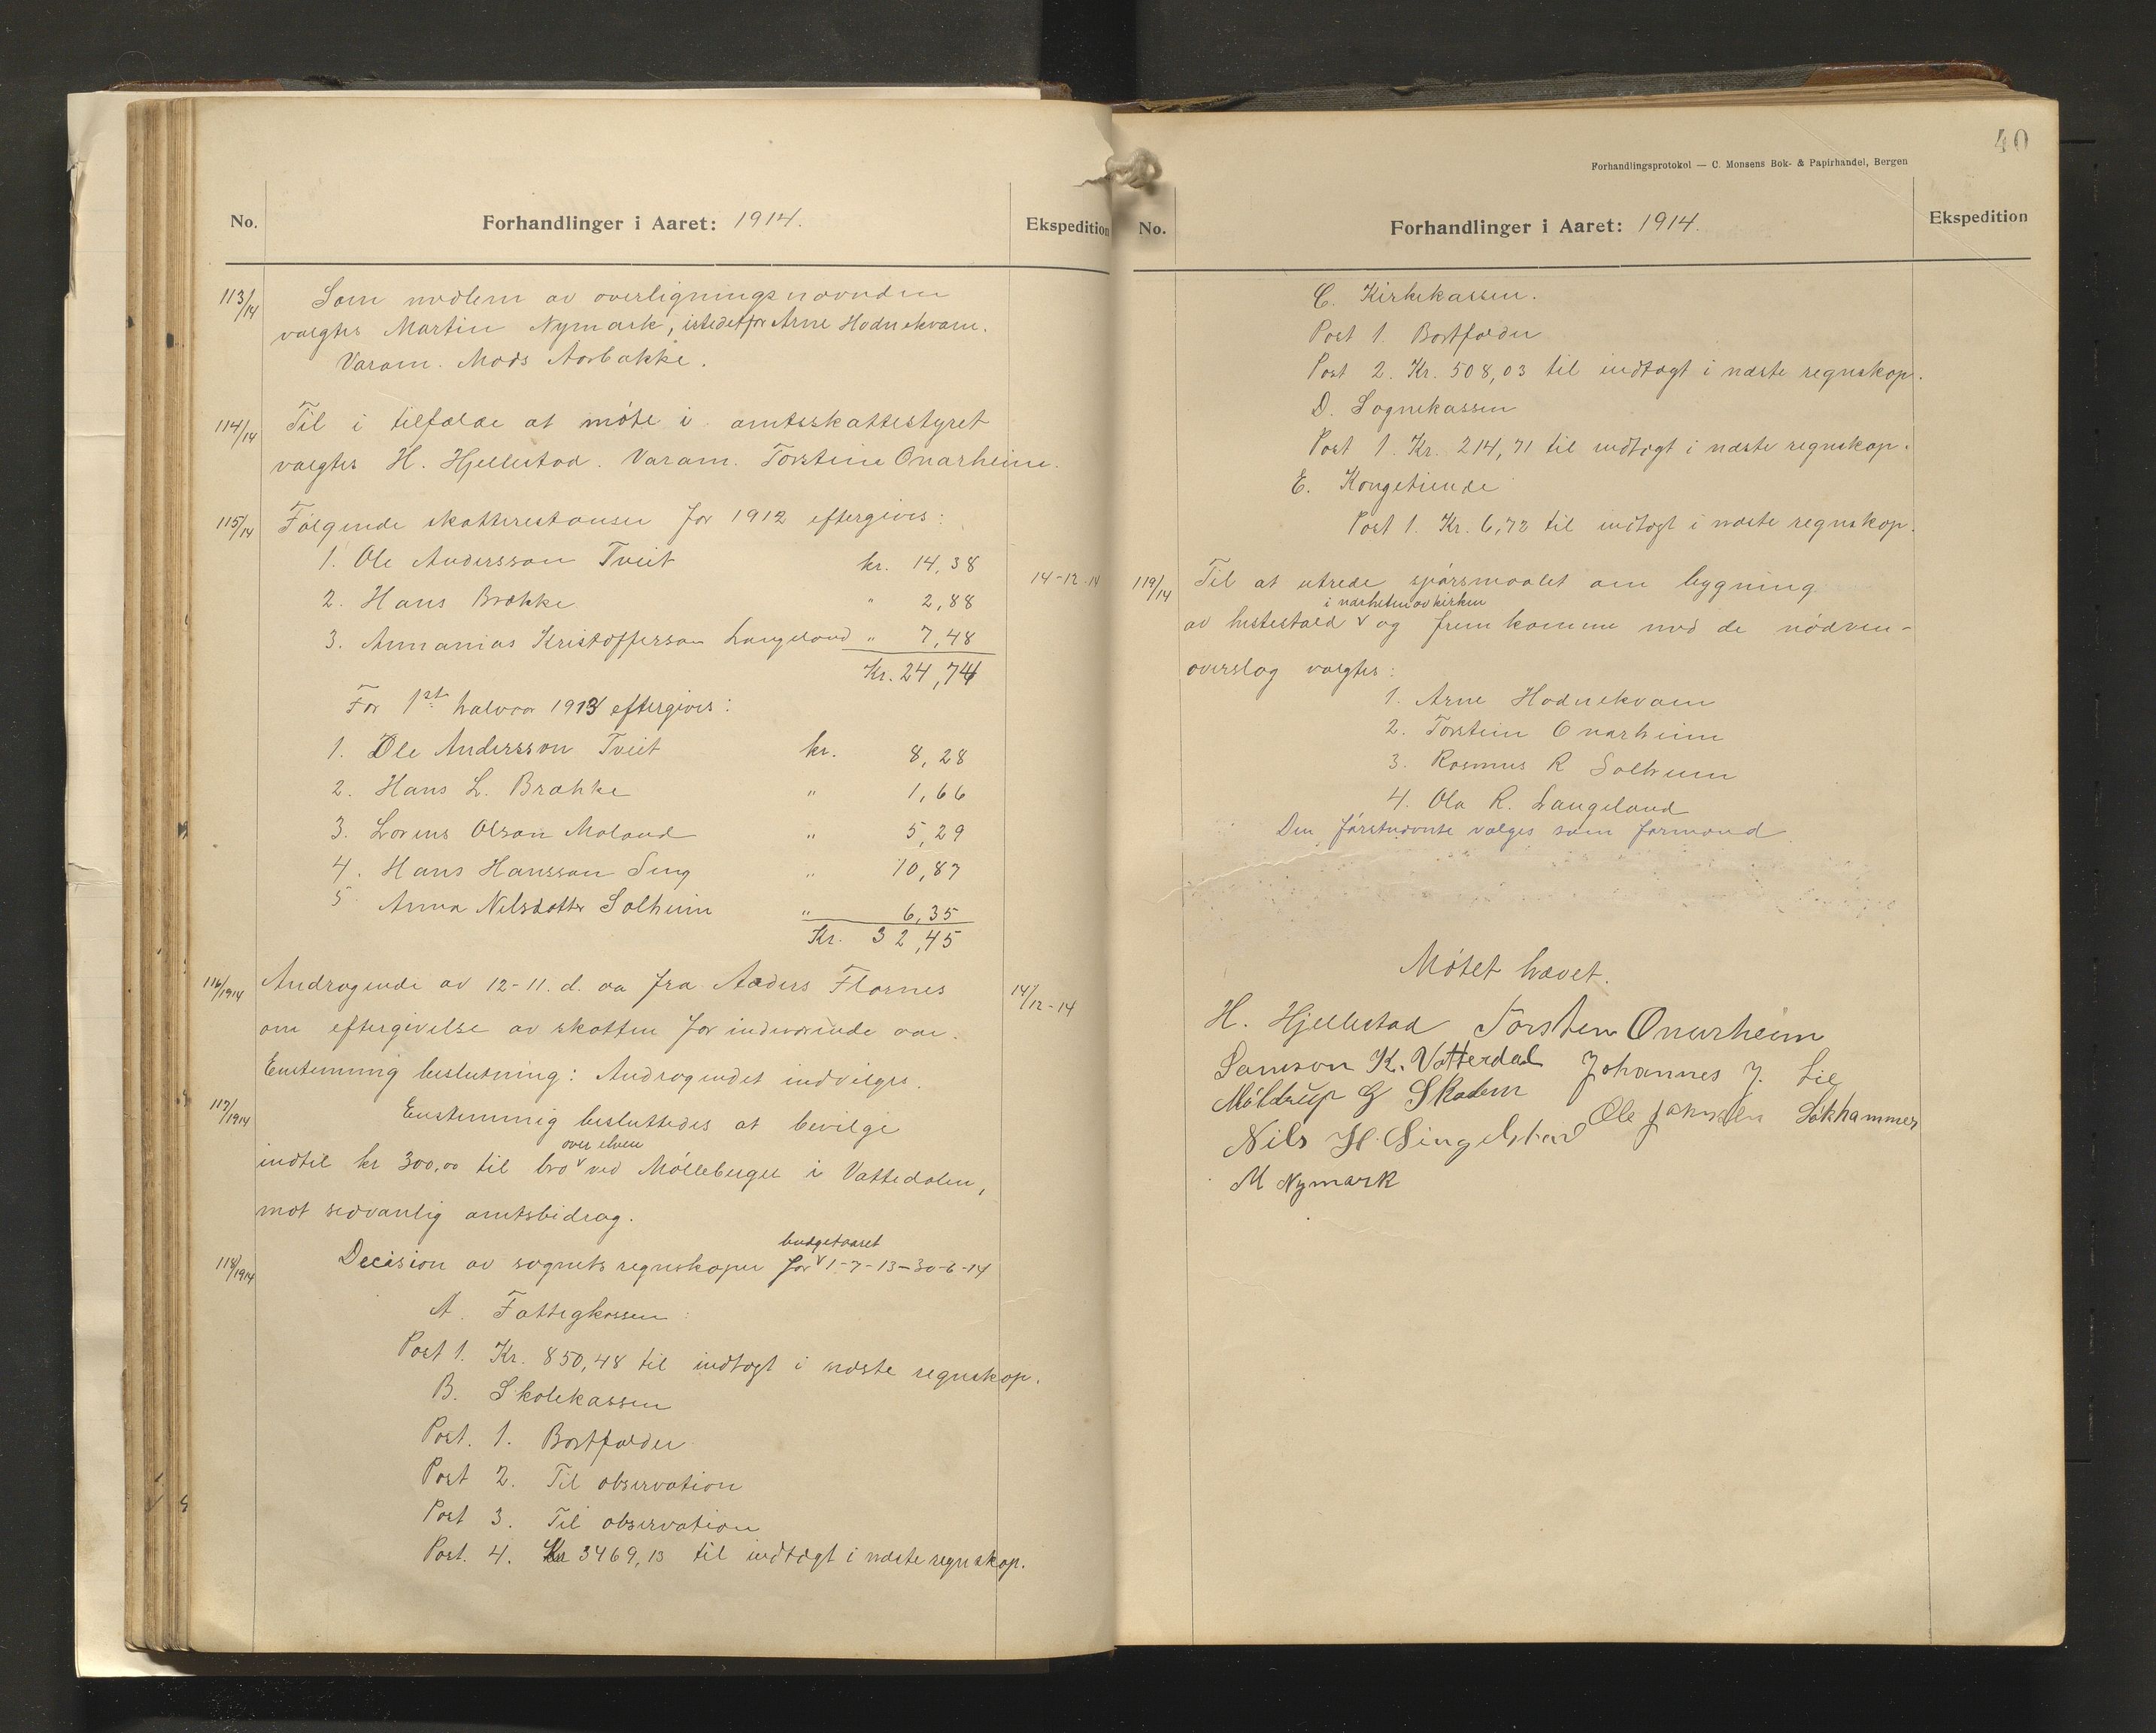 No.
Forhandlinger i Aaret: 1914.
Ekspedition
113/14
Som medlem av overligningsnævnden
valgtes Martin Nymark, istedetfor Arne Hodnekvam.
Varam. Mads Aarbakke.
114/14
Til i tilfælde at møte i amtsskattestyret
valgtes H. Hjellestad. Varam. Torstein Onarheim.
115/14
Følgende skatterestanser for 1912 eftergives:
1. Ole Andersson Tveit kr. 14,38
14-12-14
2. Hans Brække " 2,88
3. Annanias Kristofferson Langeland " 7,48
Kr. 24,74
For 1ste halvaar 1913 eftergives:
1. Ole Andersson Tveit kr. 8,28
2. Hans L. Brække " 1,66
3. Lorens Olson Moland " 5,29
4. Hans Hansson Seng " 10,87
5 Anna Nilsdatter Solheim " 6,35
Kr. 32,45
116/1914
Andragende av 12-11. d. aa fra Anders Flornes
14/12-14
om eftergivelse av skatten for indeværende aar.
Enstemmig beslutning: Andragendet indvilges.
117/1914
Enstemmig besluttedes at bevilge
over elven
indtil kr 300,00 til bro v ved Mølleberget i Vattedalen,
mot sedvanlig amtsbidrag.
118/1914
budgetaaret
Decision av sognets regnskaper for v 1-7-13-30-6-14
A. Fattigkassen:
Post 1. Kr. 850,48 til indtægt i næste regnskap.
B. Skolekassen
Post. 1. Bortfalder
Post 2. Til observation
Post 3. Til observation
Post. 4. Kr 3469,13 til indtægt i næste regnskap.
40
Forhandlingsprotokol — C. Monsens Bok- & Papirhandel, Bergen
No.
Forhandlinger i Aaret: 1914.
Ekspedition
C. Kirkekassen.
Post 1. Bortfalder
Post 2. Kr. 508,03 til indtægt i næste regnskap.
D. Sognekassen
Post 1. Kr. 214,71 til indtægt i næste regnskap.
E. Kongetiende
Post 1. Kr. 6,72 til indtægt i næste regnskap.
119/14
Til at utrede spørsmaalet om bygning
i nærheten av kirken
av hestestald v og fremkomme med de nødven-
overslag valgtes:
1. Arne Hodnekvam
2. Torstein Onarheim
3. Rasmus R Solheim
4. Ola R. Langeland
Den førstnævnte vælges som formand
Møtet hævet.
H. Hjellestad Torsten Onarheim
Samson K. Vatterdal Johannes J. Lie
Møldrup G Skadem
Ole Johnsen Løkhammer
Nils H. Singelstad
M Nymark